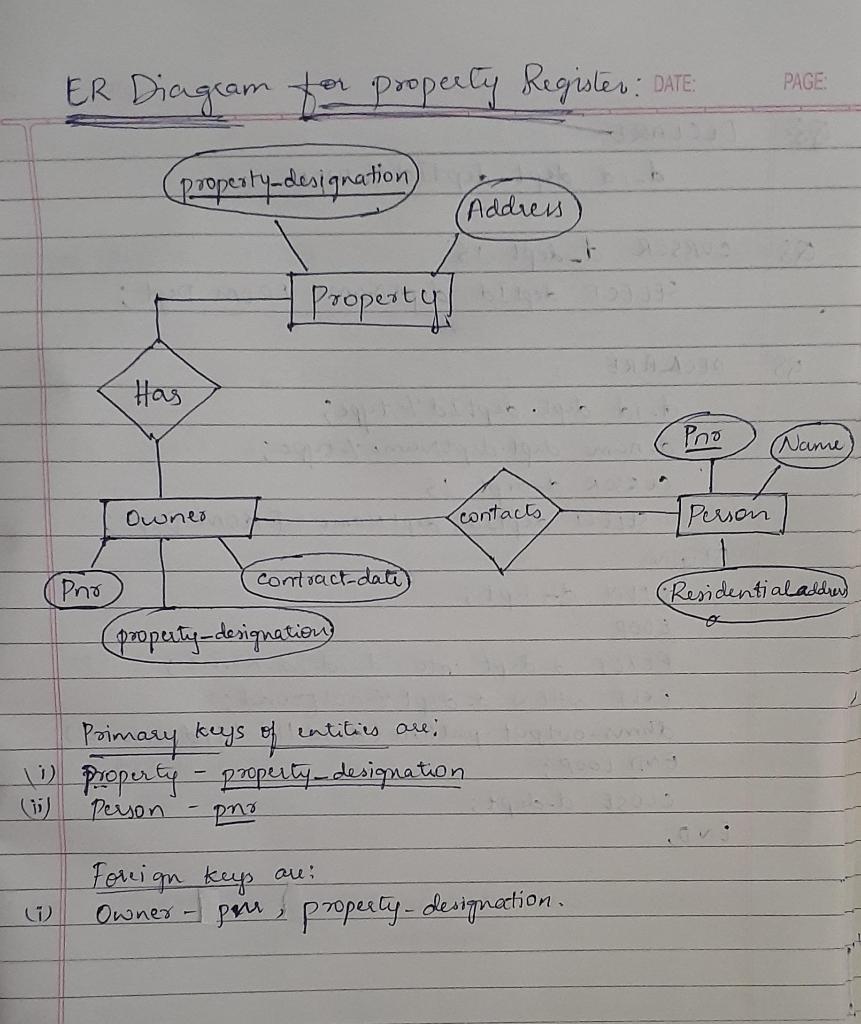 ER Diagram for property Register: DATE: PAGE:
property-designation
Address
Property
Has
Pnr
Name
Owner
contacts
Person
Pnr
contract-date
Residential address
property-designation
Primary keys of entities are:
(i) property - property-designation
(ii) Person - pnr
Foreign keys are:
(i) Owner - pnr, property-designation.